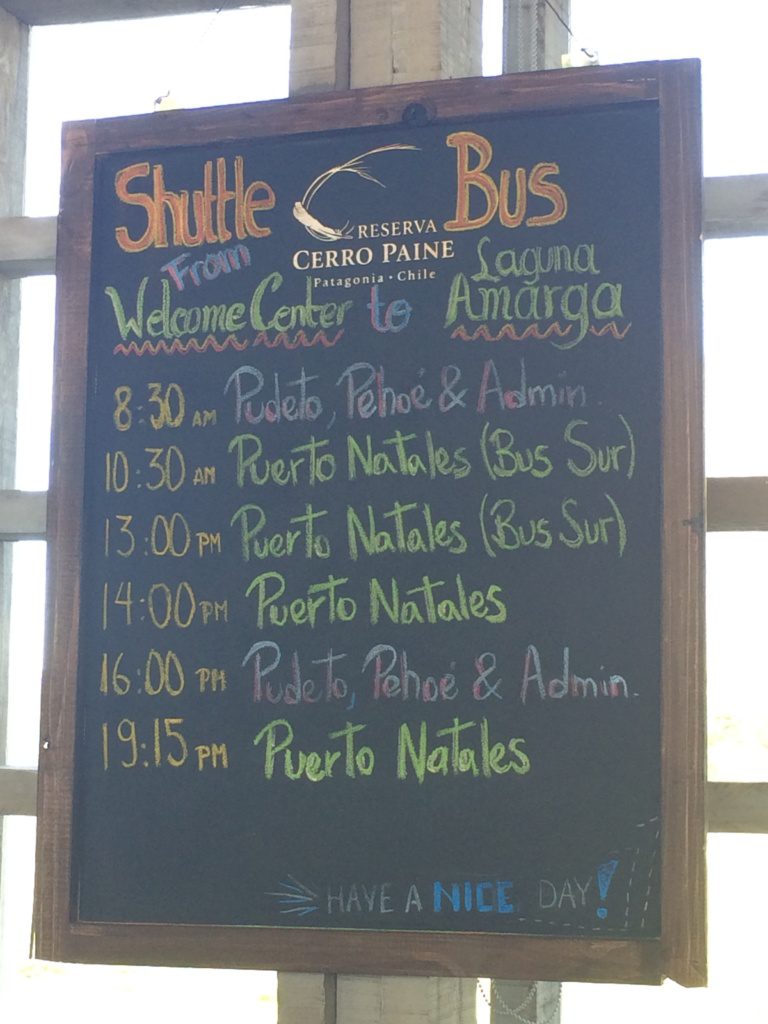 Shuttle Bus
RESERVA
CERRO PAINE
Patagonia · Chile
From
Welcome Center to Laguna Amarga
8:30 AM Pudeto, Pehoé & Admin.
10:30 AM Puerto Natales (Bus Sur)
13:00 PM Puerto Natales (Bus Sur)
14:00 PM Puerto Natales
16:00 PM Pudeto, Pehoé & Admin.
19:15 PM Puerto Natales
HAVE A NICE DAY!